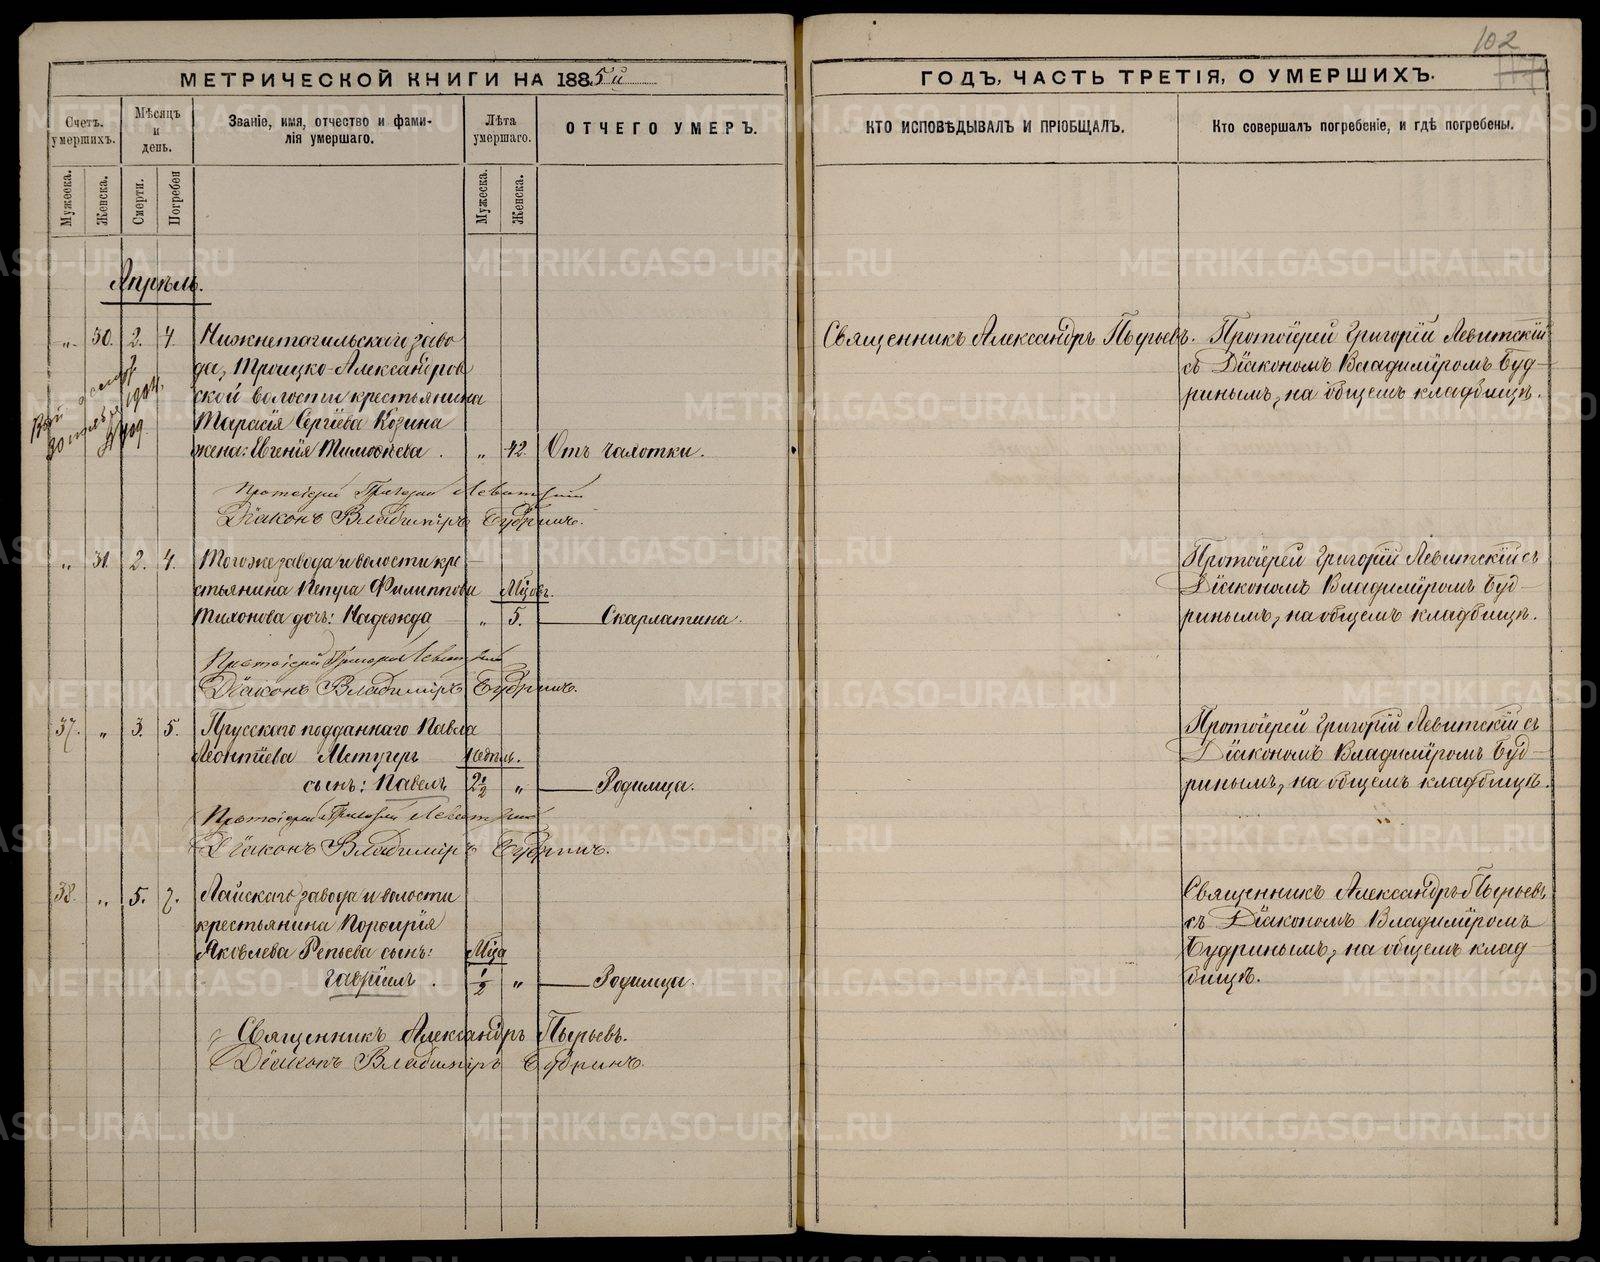 102
МЕТРИЧЕСКОЙ КНИГИ НА 1885й
ГОДЪ, ЧАСТЬ ТРЕТІЯ, О УМЕРШИХЪ.
Счетъ умершихъ.
Мѣсяцъ и день.
Званіе, имя, отчество и фами-
лія умершаго.
Лѣта умершаго.
ОТЧЕГО УМЕРЪ.
КТО ИСПОВѢДЫВАЛЪ И ПРІОБЩАЛЪ.
Кто совершалъ погребеніе, и гдѣ погребены.
Мужеска.
Женска.
Смерти.
Погребен
Мужеска.
Женска.
Апрѣль.
" 30. 2. 4. Нижнетагильскаго заво
да, Троицко-Александров
ской волости крестьянина
Тарасія Сергіева Козина
жена: Евгенія Тимофѣева. " 42. Отъ чахотки.
Священникъ Александръ Пырьевъ.
Протоіерей Григорій Левитскій
съ Діакономъ Владиміромъ Буд-
ринымъ, на общемъ кладбищѣ.
30 1904
Протоіерей Григорій Левитскій
Діаконъ Владиміръ Будринъ.
" 31. 2. 4. Тогоже завода и волости кре
стьянина Петра Филиппова Мѣсов.
Тихонова дочь: Надежда " 5. Скарлатина.
Протоіерей Григорій Левитскій съ
Діакономъ Владиміромъ Буд-
ринымъ, на общемъ кладбищѣ.
Протоіерей Григорій Левитскій
Діаконъ Владиміръ Будринъ.
37. " 3. 5. Прусскаго подданнаго Павла
Леонтіева Метцгеръ Недѣль.
сынъ: Павелъ 2 1/2 " Родимца.
Протоіерей Григорій Левитскій съ
Діакономъ Владиміромъ Буд-
ринымъ, на общемъ кладбищѣ.
Протоіерей Григорій Левитскій
Діаконъ Владиміръ Будринъ.
38. " 5. 7. Лайскаго завода и волости
крестьянина Порфирія
Яковлева Репьева сынъ: Мѣца
Гавріилъ. 1/2 " Родимца.
Священникъ Александръ Пырьевъ,
съ Діакономъ Владиміромъ
Будринымъ, на общемъ клад
бищѣ.
Священникъ Александръ Пырьевъ.
Діаконъ Владиміръ Будринъ.
METRIKI.GASO-URAL.RU